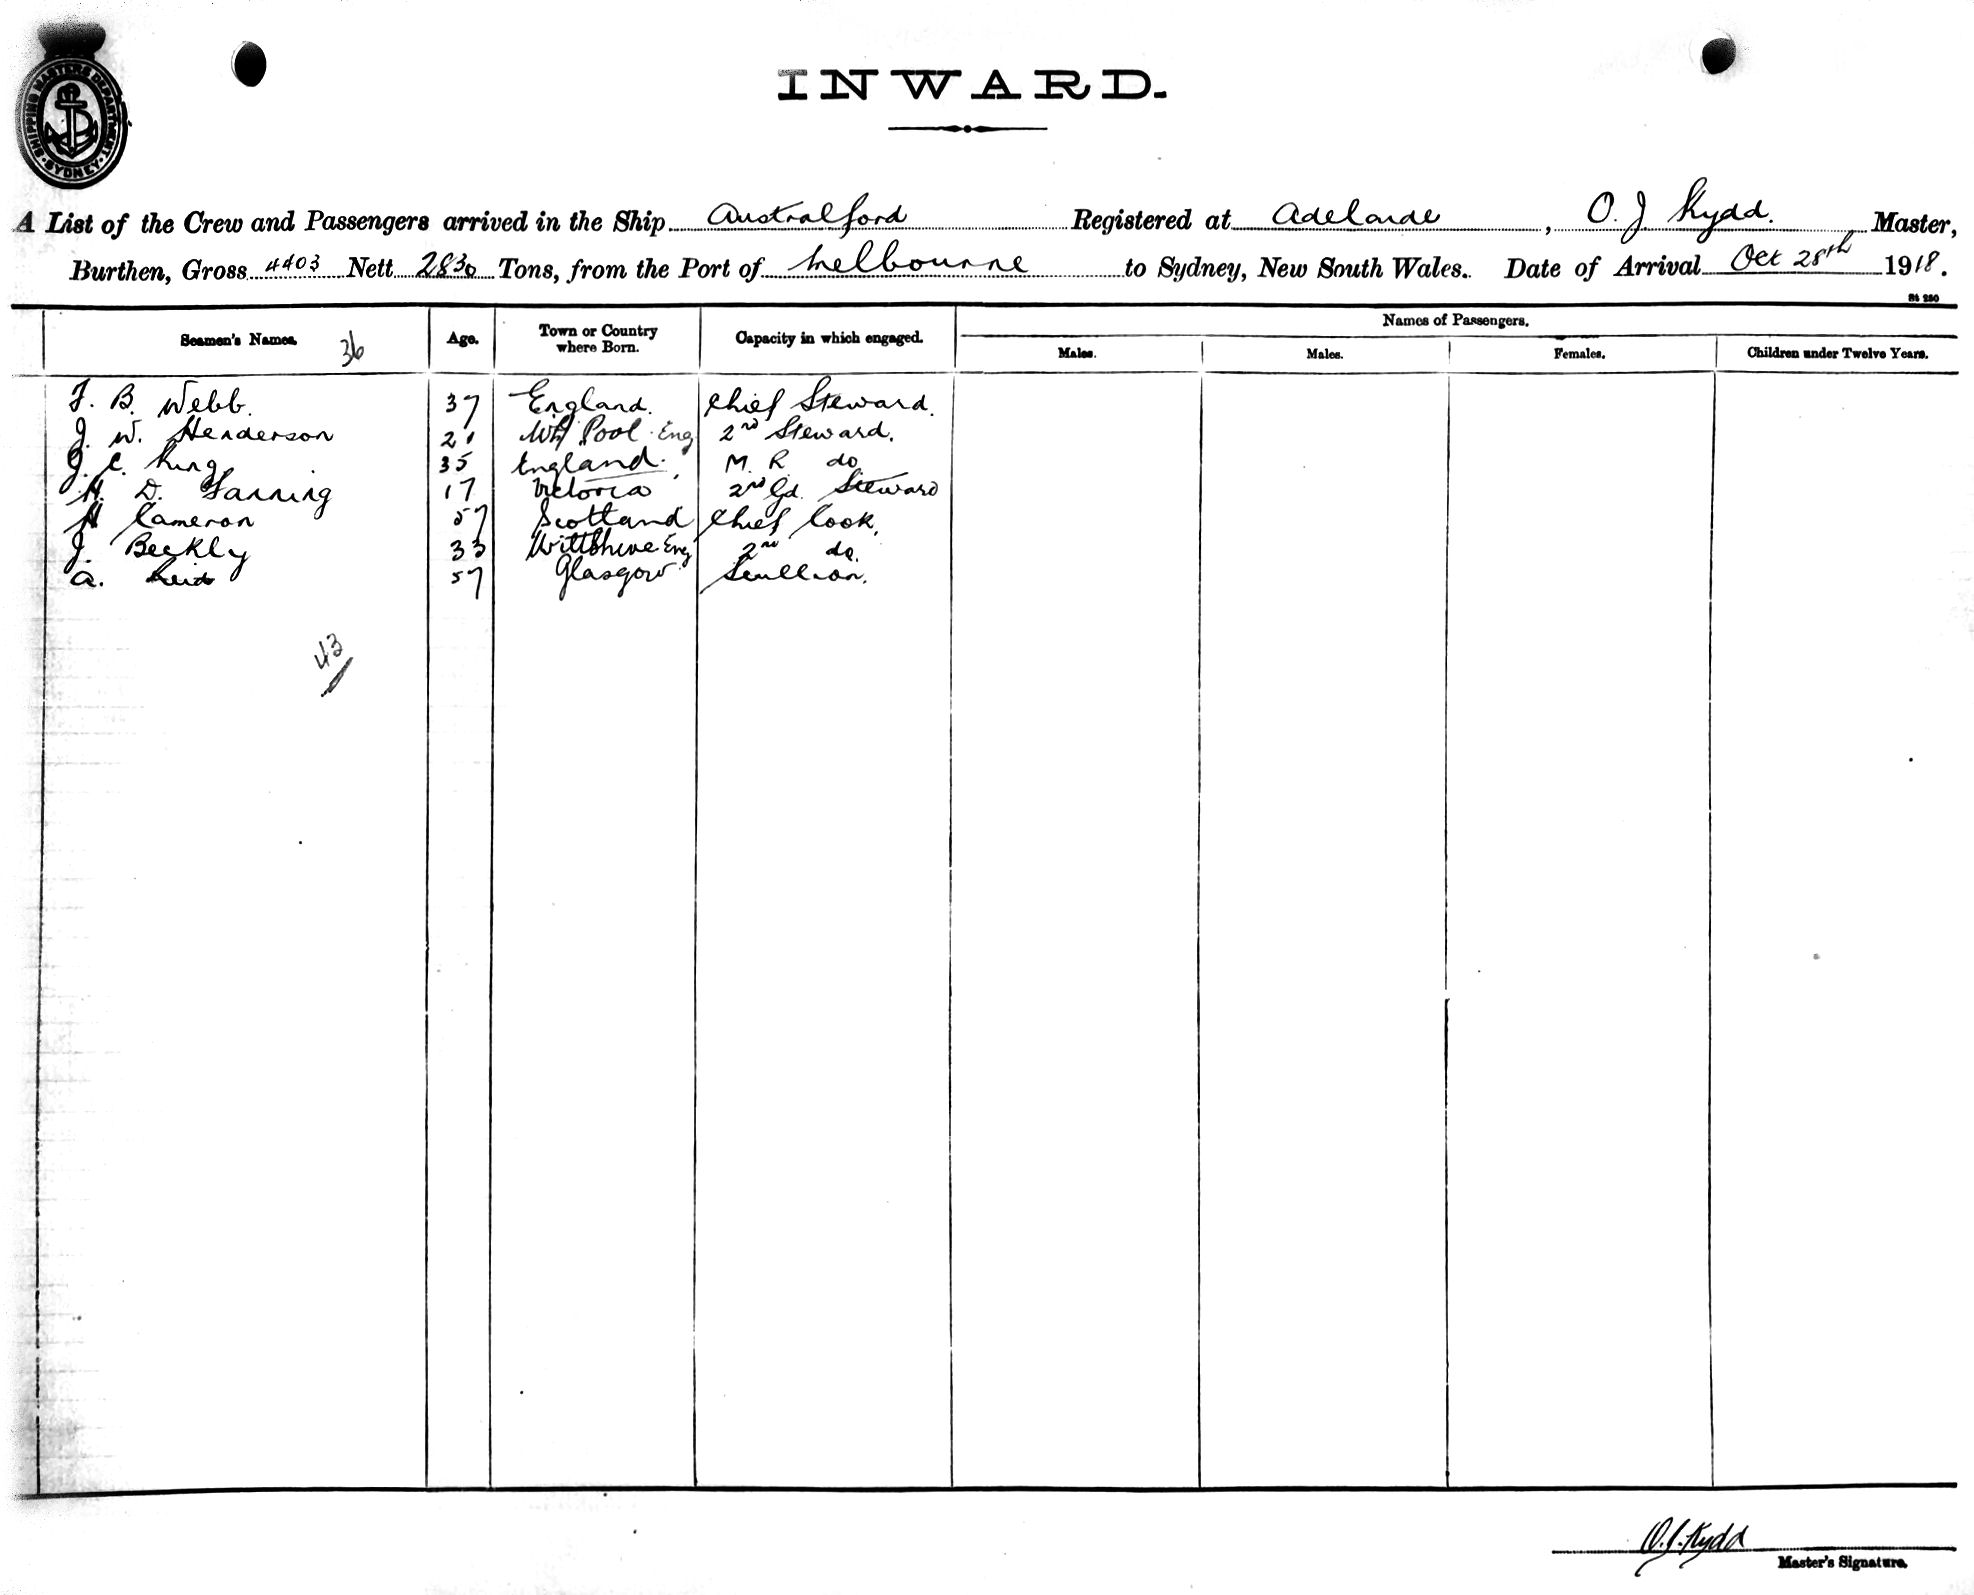 SHIPPING MASTERS DEPARTMENT · SYDNEY ·
INWARD.
A List of the Crew and Passengers arrived in the Ship Australford Registered at Adelaide, O. J Kydd. Master,
Burthen, Gross 4403 Nett 2830 Tons, from the Port of Melbourne to Sydney, New South Wales. Date of Arrival Oct 28th 1918.
St 280
Seamen's Names. 36 Age. Town or Country where Born. Capacity in which engaged. Names of Passengers.
Males. Males. Females. Children under Twelve Years.
F. B. Webb. 37 England. Chief Steward.
J. W. Henderson 21 Pool Eng 2nd Steward.
J. C. King 35 England. M. R. do
H. D. Fanning 17 Victoria 2nd Gd. Steward
H Cameron 57 Scotland Chief Cook.
J. Beckly 33 Wiltshire Eng 2nd do.
A. Reid 57 Glasgow Scullion.
43
O. J. Kydd
Master's Signature.